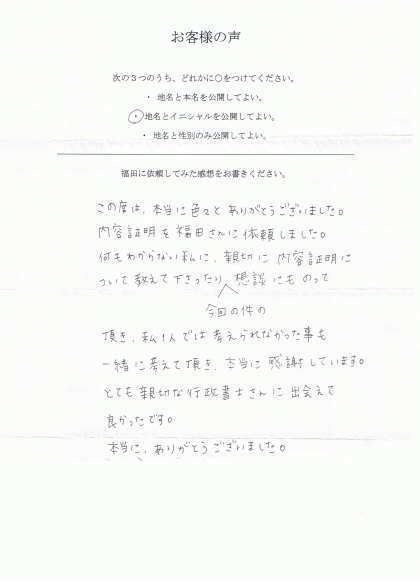 お客様の声
次の3つのうち、どれかに○をつけてください。
・ 地名と本名を公開してよい。
・ 地名とイニシャルを公開してよい。
・ 地名と性別のみ公開してよい。
福田に依頼してみた感想をお書きください。
この度は、本当に色々とありがとうございました。
内容証明を福田さんに依頼しました。
何もわからない私に、親切に内容証明に
ついて教えて下さったり、想談にものって
今回の件の
頂き、私1人では考えられなかった事も
一緒に考えて頂き、本当に感謝しています。
とても親切な行政書士さんに出会えて
良かったです。
本当に、ありがとうございました。